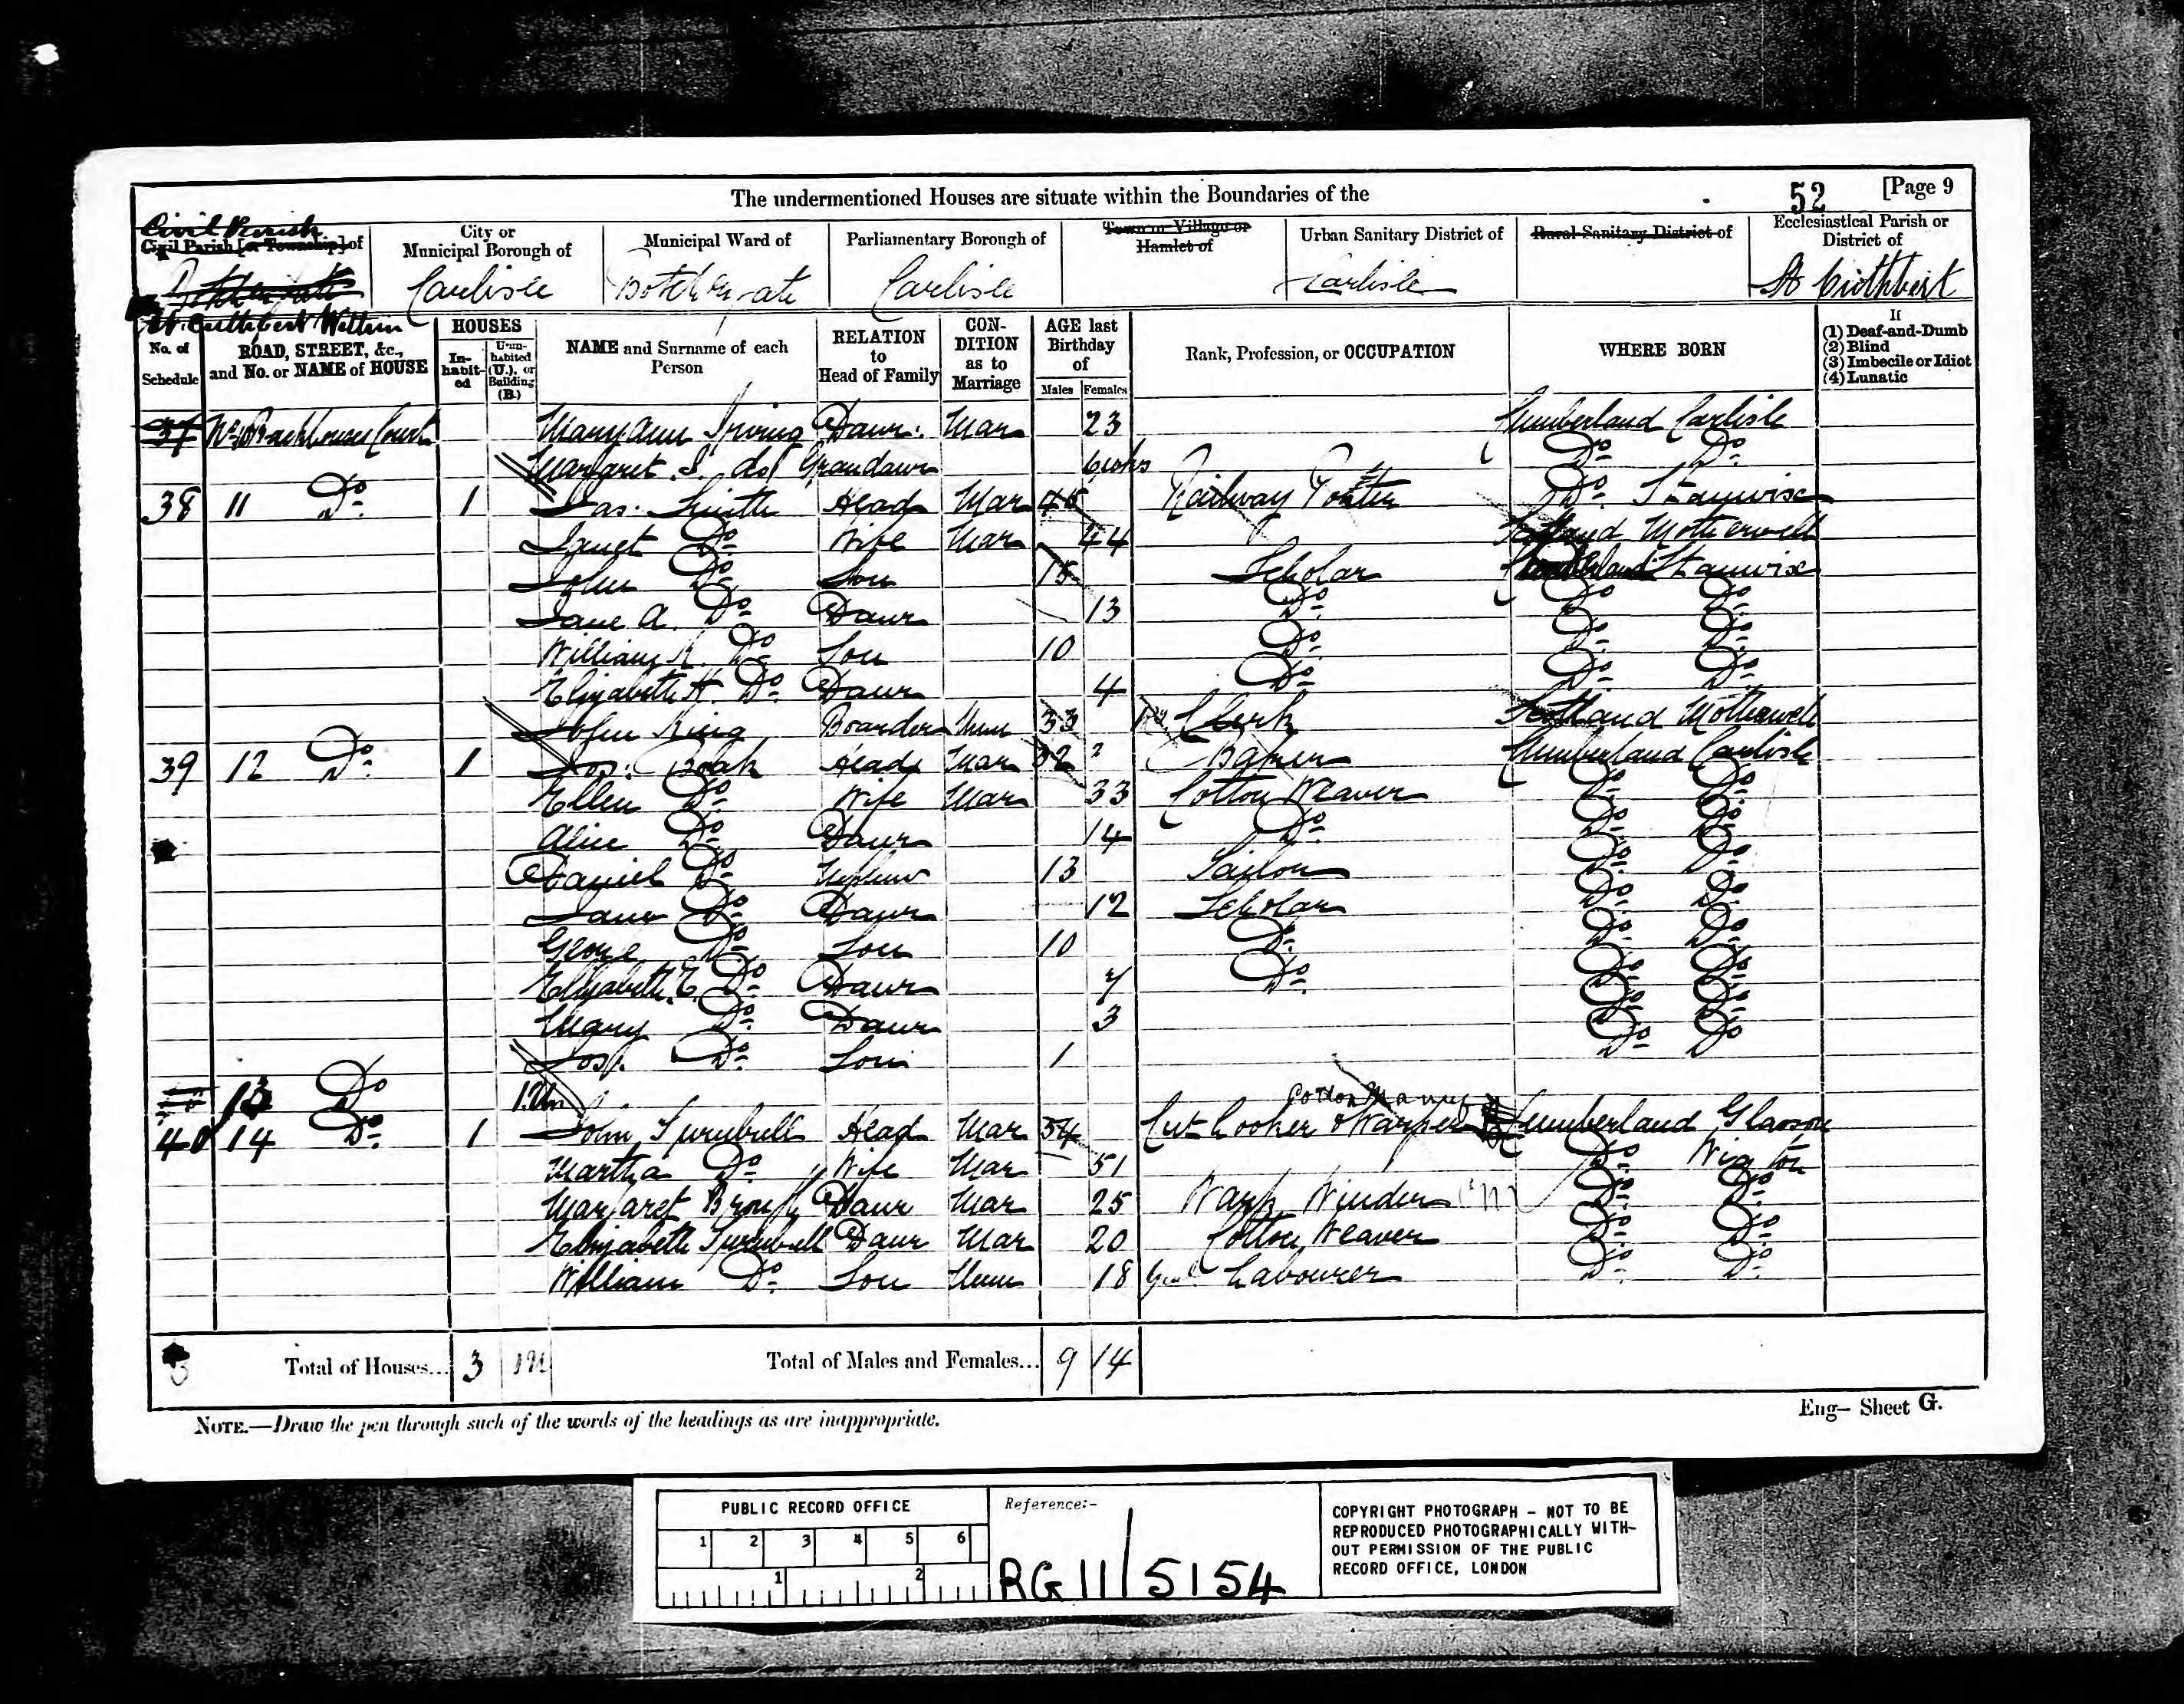 The undermentioned Houses are situate within the Boundaries of the
52 [Page 9
Civil Parish
Civil Parish [or Township] of
City or Municipal Borough of
Municipal Ward of
Parliamentary Borough of
Town or Village or Hamlet of
Urban Sanitary District of
Rural Sanitary District of
Ecclesiastical Parish or District of
Botchergate Carlisle Botchergate Carlisle Carlisle St Cuthbert
St Cuthbert Within
No. of Schedule
ROAD, STREET, &c., and No. or NAME of HOUSE
HOUSES
In-habit-ed
Unin-habited (U.), or Building (B.)
NAME and Surname of each Person
RELATION to Head of Family
CON-DITION as to Marriage
AGE last Birthday of
Males Females
Rank, Profession, or OCCUPATION
WHERE BORN
If
(1) Deaf-and-Dumb
(2) Blind
(3) Imbecile or Idiot
(4) Lunatic
37 Court Mary Ann Irving Daur. Mar 23 Cumberland Carlisle
Margaret I. do Grandaur Do. Do.
38 11 Do. 1 Jas. Smith Head Mar Railway Porter Do. Stanwix
Janet Do. Wife Mar 44 Scotland Motherwell
John Do. Son 15 Scholar Cumberland Stanwix
Jane A. Do. Daur 13 Do. Do. Do.
William Do. Son 10 Do. Do. Do.
Elizabeth H. Do. Daur 4 Do. Do. Do.
John King Boarder Unm 33 Clerk Scotland Motherwell
39 12 Do. 1 Jos. Boak Head Mar 32 Cumberland Carlisle
Ellen Do. Wife Mar 33 Cotton Weaver Do. Do.
Alice Do. Daur 14 Do. Do. Do.
Daniel Do. Nephew 13 Do. Do.
Jane Do. Daur 12 Scholar Do. Do.
George Do. Son 10 Do. Do. Do.
Elizabeth E. Do. Daur 7 Do. Do. Do.
Mary Do. Daur 3 Do. Do.
Jos. Do. Son 1 Do. Do.
13 Do. 1 Un
Cotton Manuf
40 14 Do. 1 John Turnbull Head Mar 54 Looker & Warper Cumberland Glasson
Martha Do. Wife Mar 51 Do. Wigton
Margaret Brough Daur Mar 25 Warp Winder Do. Do.
Elizabeth Turnbull Daur Mar 20 Cotton Weaver Do. Do.
William Do. Son Unm 18 Genl Labourer Do. Do.
3 Total of Houses... 3 1 Total of Males and Females... 9 14
NOTE.—Draw the pen through such of the words of the headings as are inappropriate.
Eng— Sheet G.
PUBLIC RECORD OFFICE
1 2 3 4 5 6
1 2
Reference:-
RG 11/5154
COPYRIGHT PHOTOGRAPH - NOT TO BE
REPRODUCED PHOTOGRAPHICALLY WITH-
OUT PERMISSION OF THE PUBLIC
RECORD OFFICE, LONDON